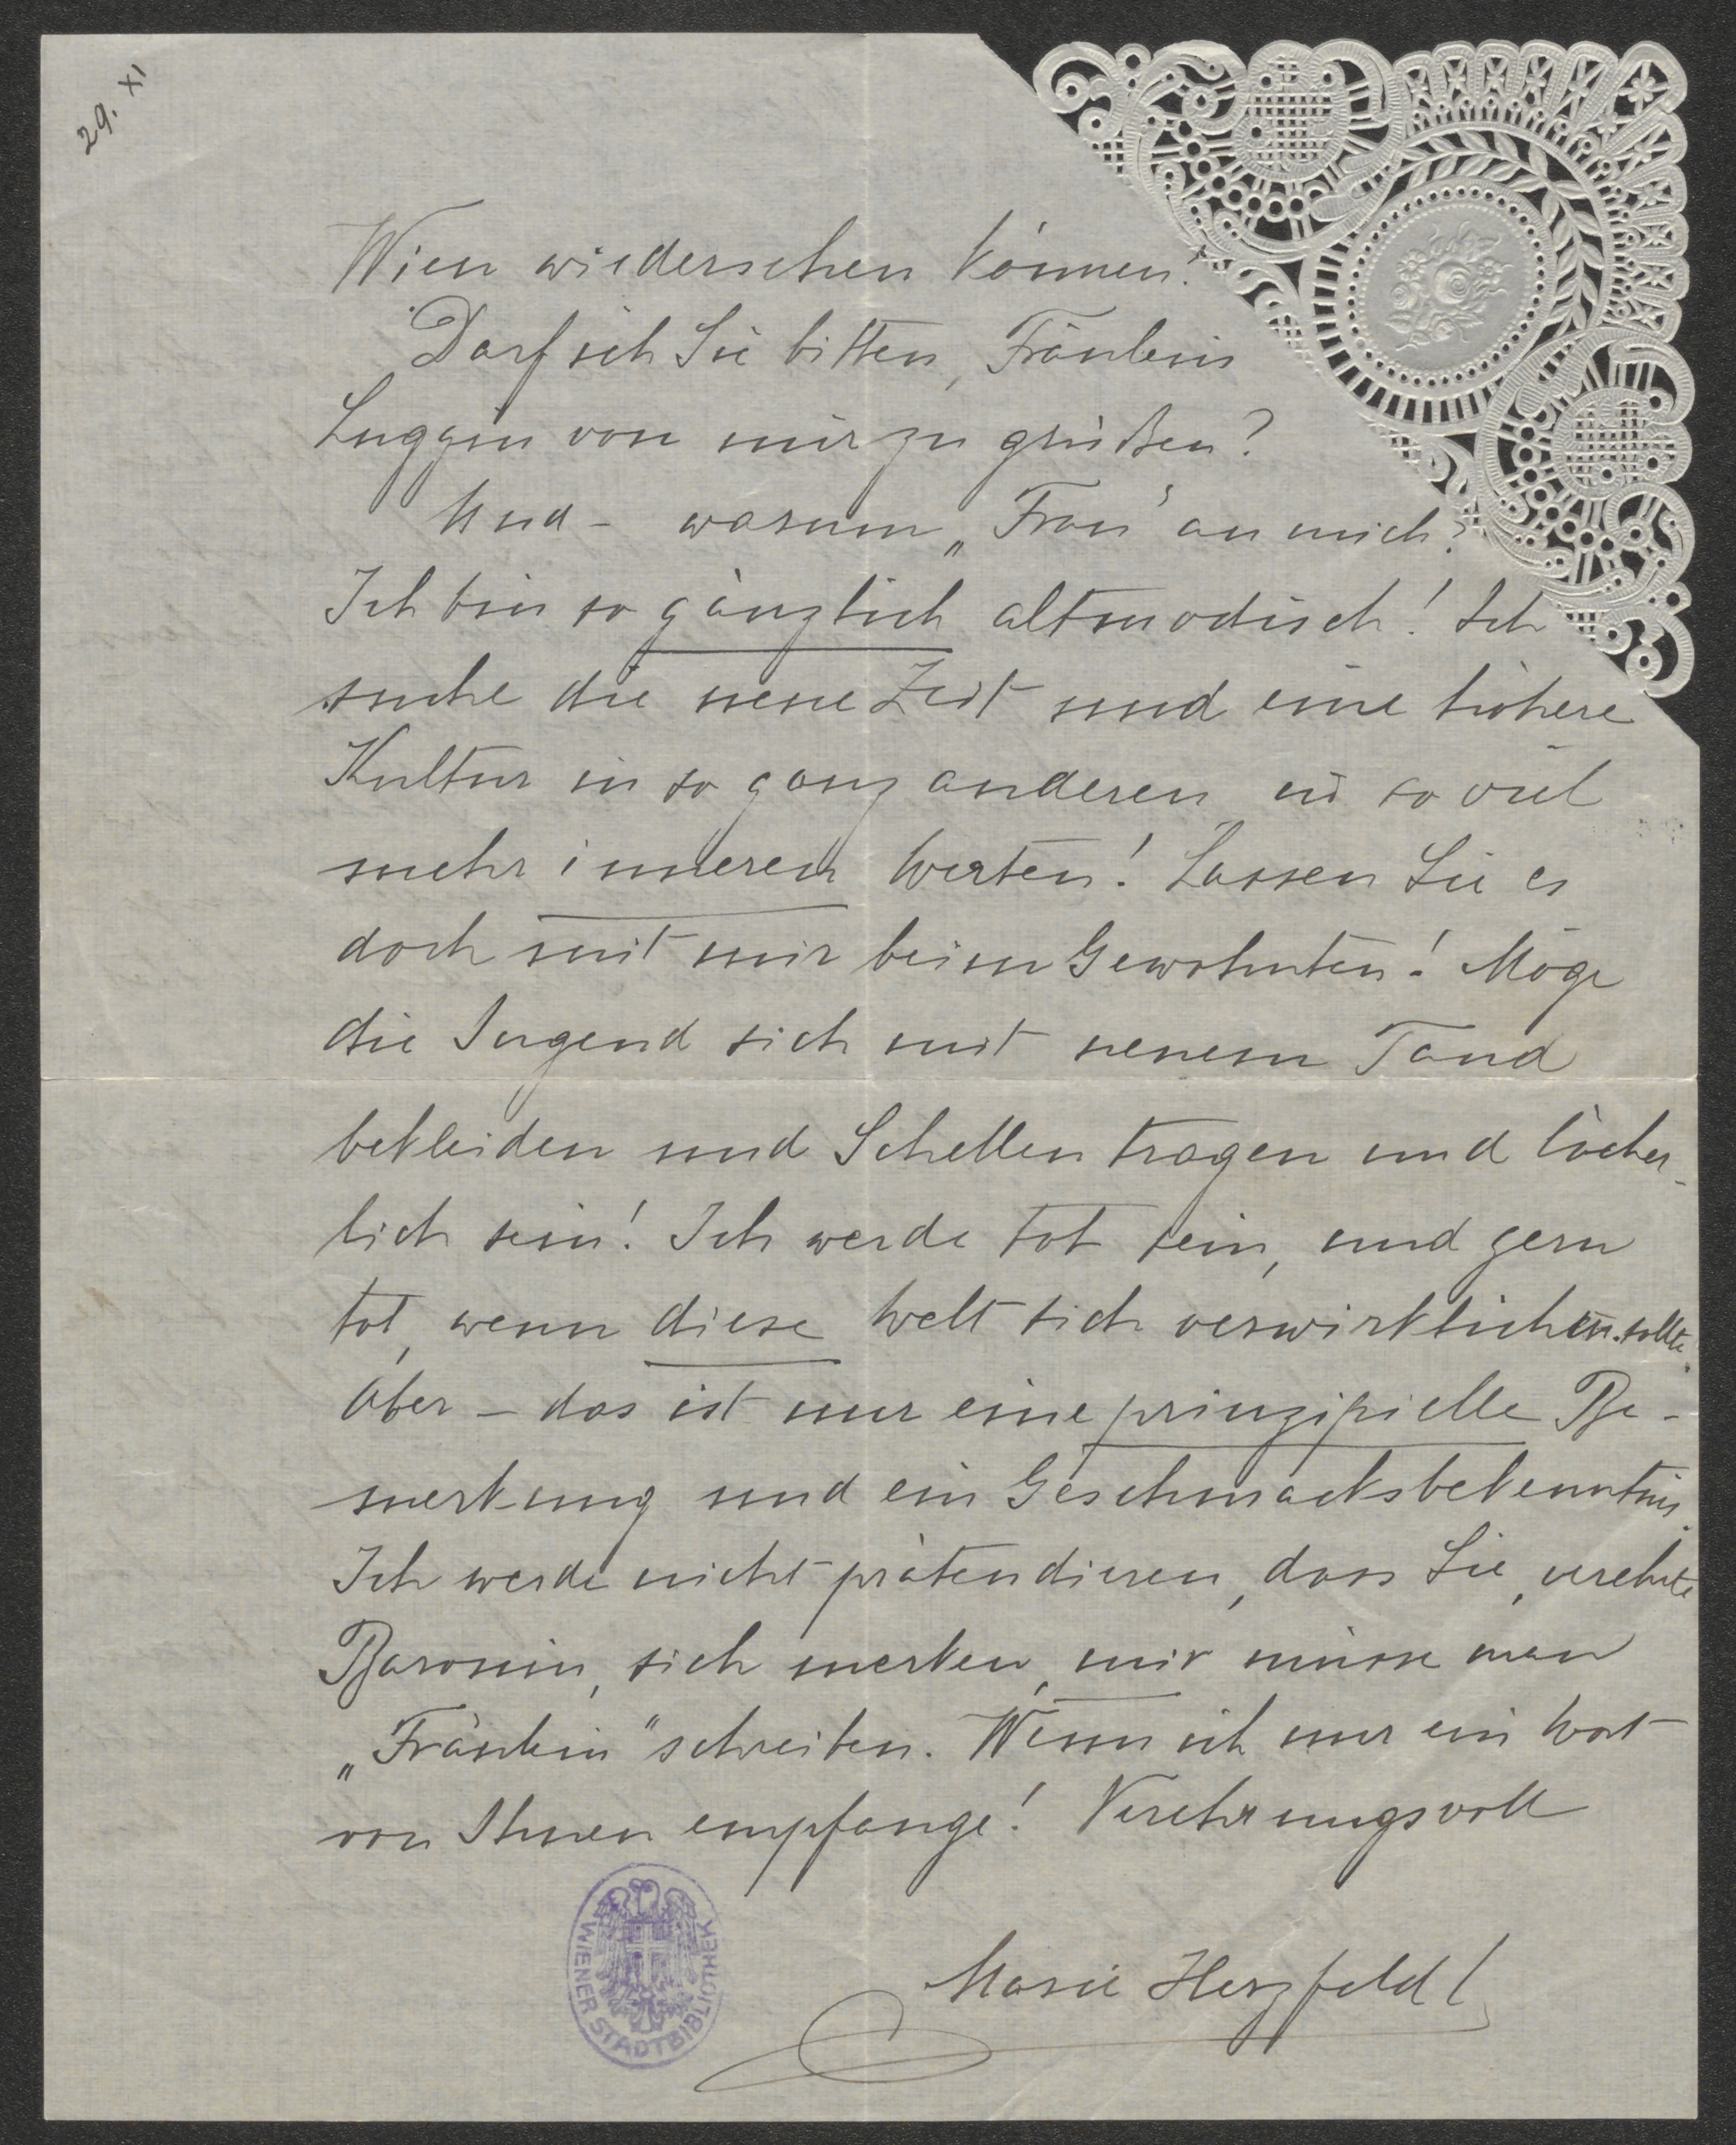 29. XI
Wien wiedersehen können!
Darf ich Sie bitten, Fräulein
Luggin von mir zu grüßen?
Und – warum „Frau" an mich?
Ich bin so gänzlich altmodisch! Ich
suche die neue Zeit und eine höhere
Kultur in so ganz anderen u so viel
mehr inneren Werten! Lassen Sie es
doch mit mir beim Gewohnten! Möge
die Jugend sich mit neuem Tand
bekleiden und Schellen tragen und lächer-
lich sein! Ich werde tot sein, und gern
tot, wenn diese Welt sich verwirklichen sollte.
Aber – das ist nur eine prinzipielle Be-
merkung und ein Geschmacksbekenntnis.
Ich werde nicht prätendieren, dass Sie, verehrte
Baronin, sich merken, mir müsse man
„Fräulein" schreiben. Wenn ich nur ein Wort
von Ihnen empfange! Verehrungsvoll
Marie Herzfeld
WIENER STADTBIBLIOTHEK